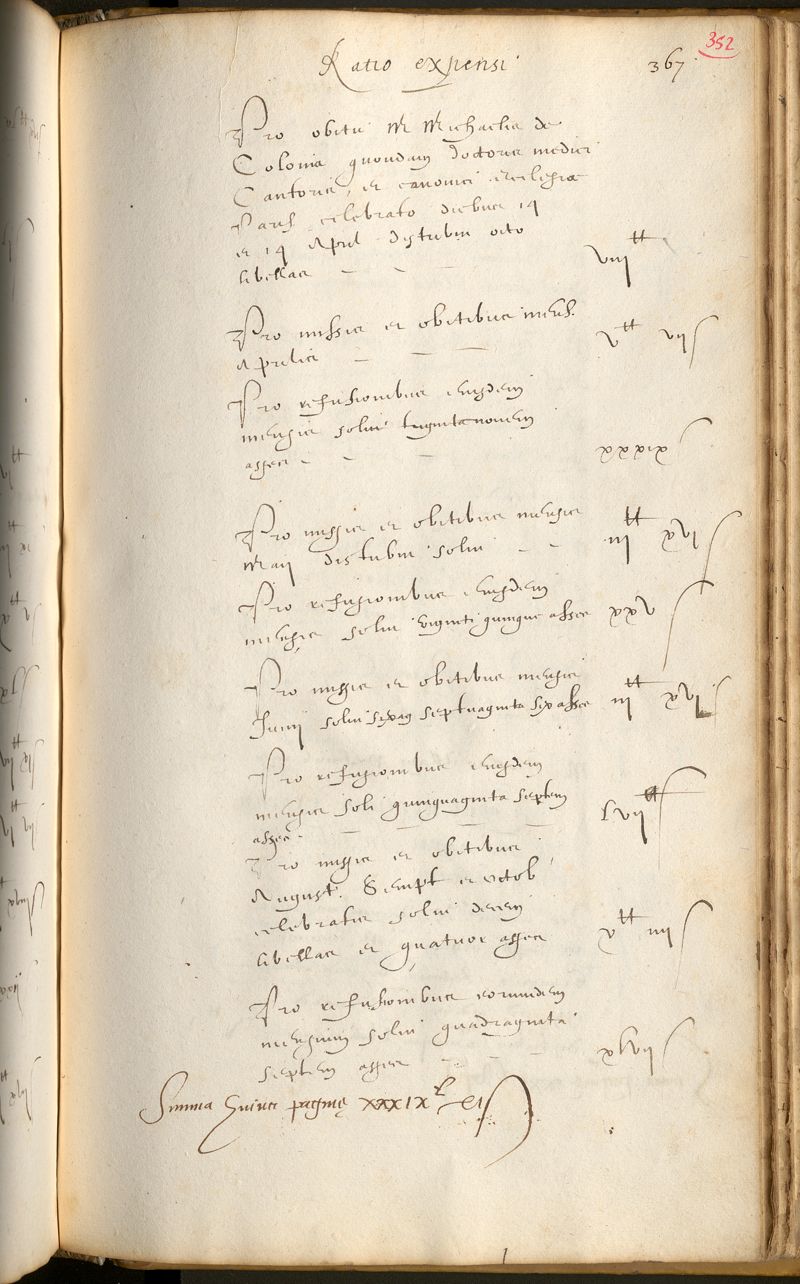 352
Ratio expensi 367
Pro obitu M Michaelis de
Colonia quondam doctoris medici
Cantoris, et canonici ecclesiae
Paris celebrato diebus 14
et 14 April distribui octo
libellas — — — viii tt
Pro missis et obitibus mens.
Aprilis — — — v tt vii s
Pro refusionibus eiusdem
mensis solui triginta novem
asses — — — xxxix s
Pro missis et obitibus mensis
Maii distribui solui — — iii tt
Pro refusionibus eiusdem
mensis solui viginti quinque asses xxv s
Pro missis et obitibus mensis
Junii solui septuaginta sex asses iii tt xvi s
Pro refusionibus eiusdem
mensis solui quinquaginta septem
asses — — — lvii s
Pro missis et obitibus
August. Septemb et octob
celebratis solui decem
libellas et quatuor asses v tt iiii s
Pro refusionibus eorumdem
mensium solui quadraginta
septem asses — — — xlvii s
Summa huius paginę xxxix l